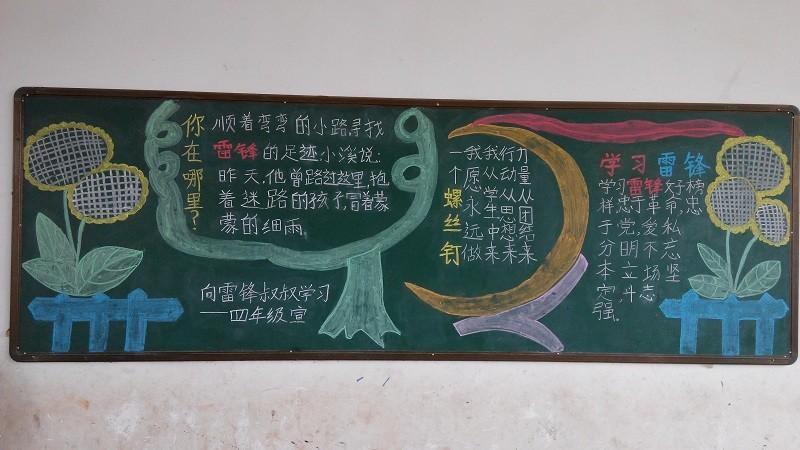 你在哪里？
顺着弯弯的小路寻找
雷锋的足迹小溪说：
昨天，他曾路过这里，抱
着迷路的孩子，冒着蒙
蒙的细雨。
向雷锋叔叔学习
——四年级宣
我愿永远做
一个螺丝钉
我从学生中来
行动从思想来
力量从团结来
学习雷锋
学习雷锋好榜
样忠于革命，忠
于党，爱私
分明不忘
本立场坚
定，斗志
强。